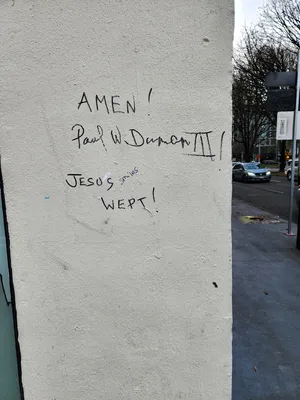 AMEN!
Paul W. Duman III!
JESUS smiles
WEPT!